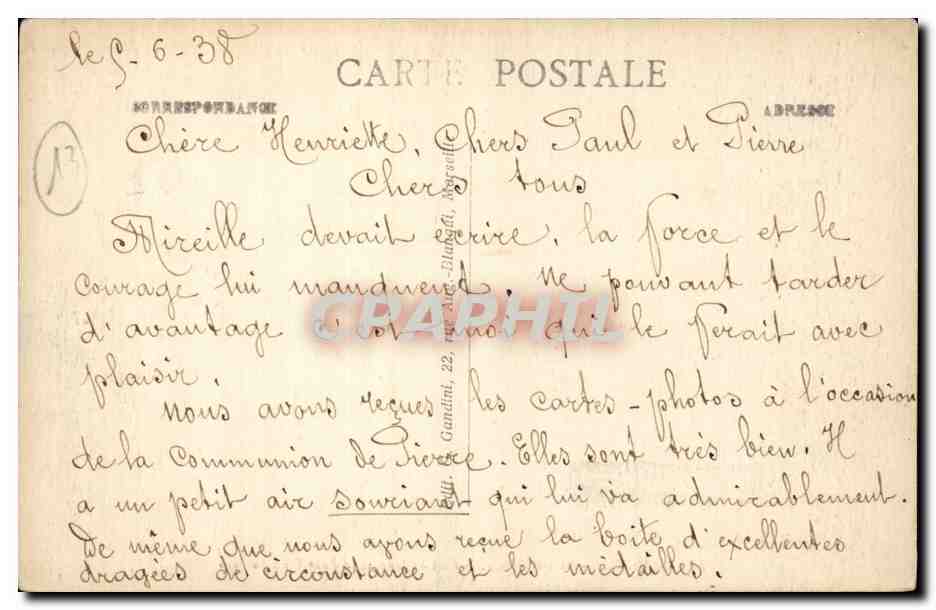 le 5-6-38
CARTE POSTALE
CORRESPONDANCE
ADRESSE
13
Chère Henriette, Chers Paul et Pierre
Chers tous
Mireille devait ecrire, la force et le
courage lui manquent. Ne pouvant tarder
d'avantage c'est moi qui le ferait avec
plaisir.
Nous avons reçues les cartes-photos à l'occasion
de la Communion de Pierre. Elles sont très bien. Il
a un petit air souriant qui lui va admirablement.
De même que nous avons reçue la boite d'excellentes
dragées de circonstance et les médailles.
Gandini, 22, rue Marseille
CPAPHIL